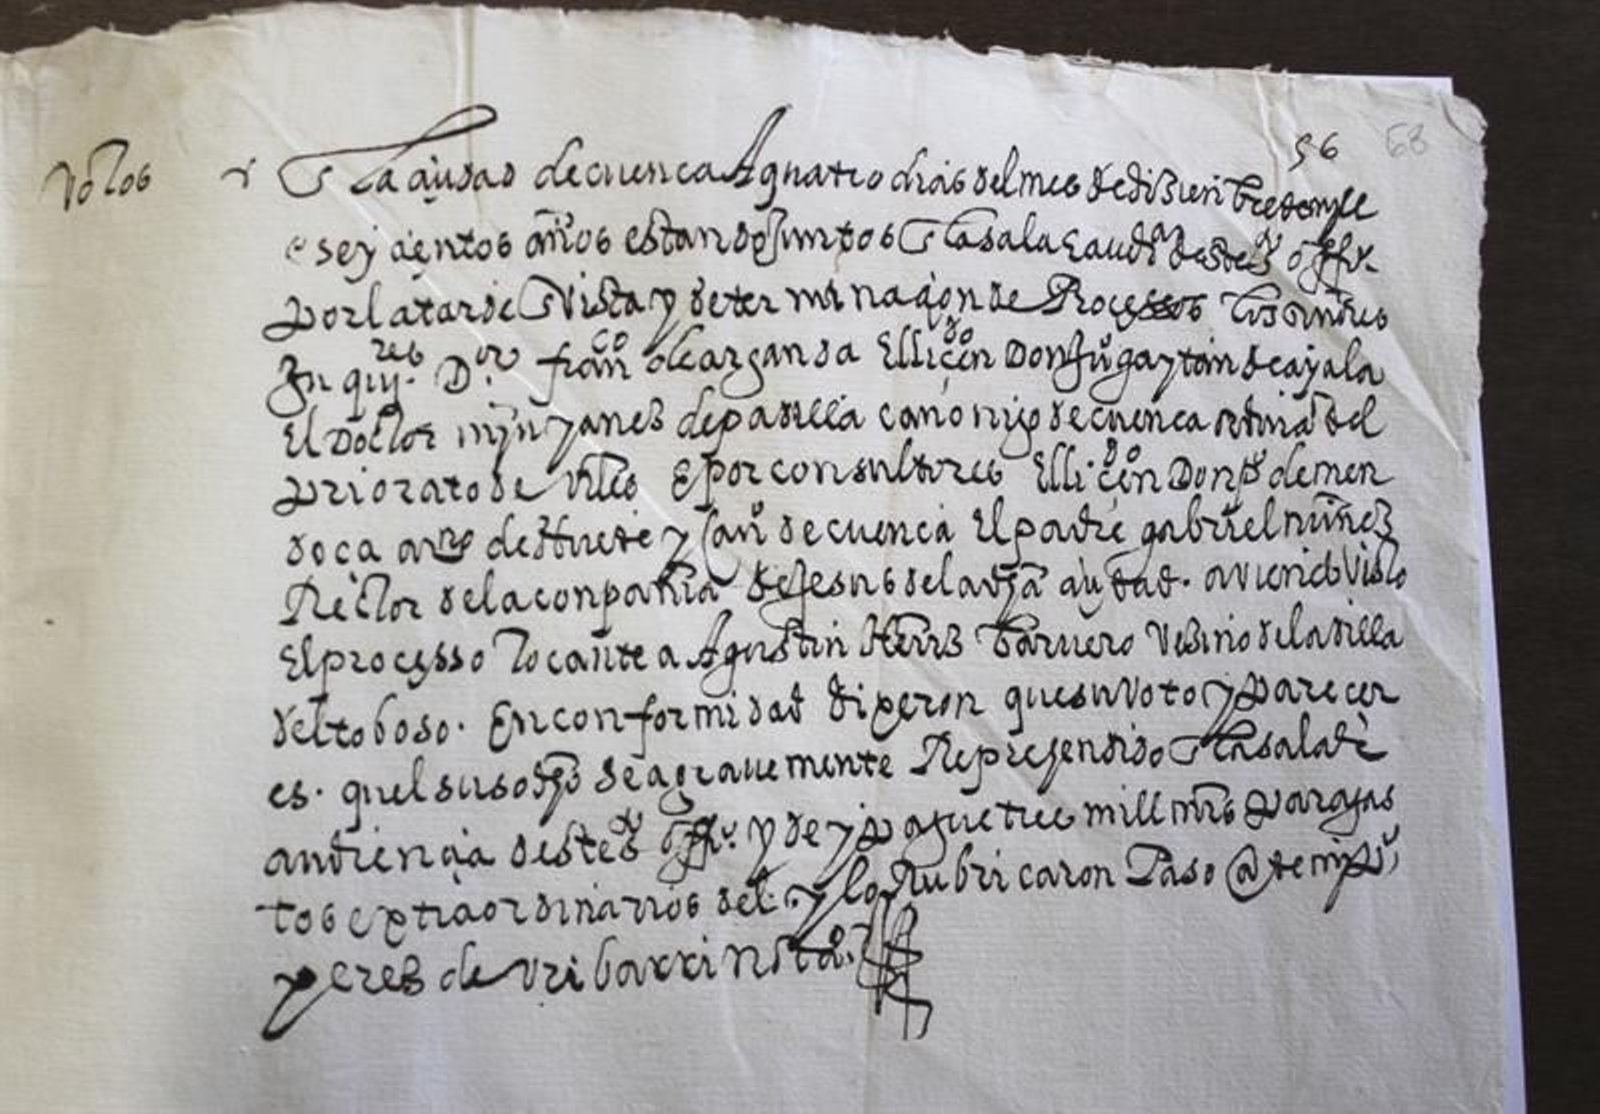 56 68
Votos En la ciudad de cuenca A quatro dias del mes de dizienbre de mill
e seyscientos años estando Juntos En la sala e audiª deste sº offº
por la tarde En vista y determinaçion de Processos los señores
Inqres Dor franco de arganda El licendo Don Juº gaytan de ayala
El Doctor min yanez de padilla canonigo de cuenca del
priorato de Ucles E por consultores El licendo Don pº de men
doca de Huete y can de cuenca El padre gabriel nuñez
Rector de la conpañia de Jesus de la dha ciudad. aviendo visto
El processo tocante a Agustin Herrz barvero vezino de la villa
del toboso. En conformidad dixeron que su voto y parecer
es. quel susodho sea gravemente Reprehendido En la sala de
audiencia deste sº offº y de y pague tres mill mrs para gas
tos extraordinarios del. y lo Rubricaron Paso Ante mi pº
perez de uribarri notº.